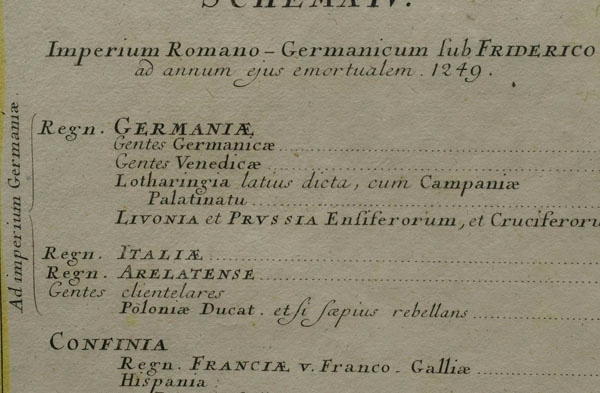 SCHEMA IV.
Imperium Romano-Germanicum sub FRIDERICO
ad annum ejus emortualem. 1249.
Ad imperium Germaniæ.
Regn. GERMANIÆ
Gentes Germanicæ
Gentes Venedicæ
Lotharingia latius dicta, cum Campaniæ
Palatinatu
LIVONIA et PRVSSIA Ensiferorum, et Cruciferoru
Regn. ITALIÆ
Regn. ARELATENSE
Gentes clientelares
Poloniæ Ducat. etsi sæpius rebellans
CONFINIA
Regn. FRANCIÆ v. Franco-Galliæ
Hispania